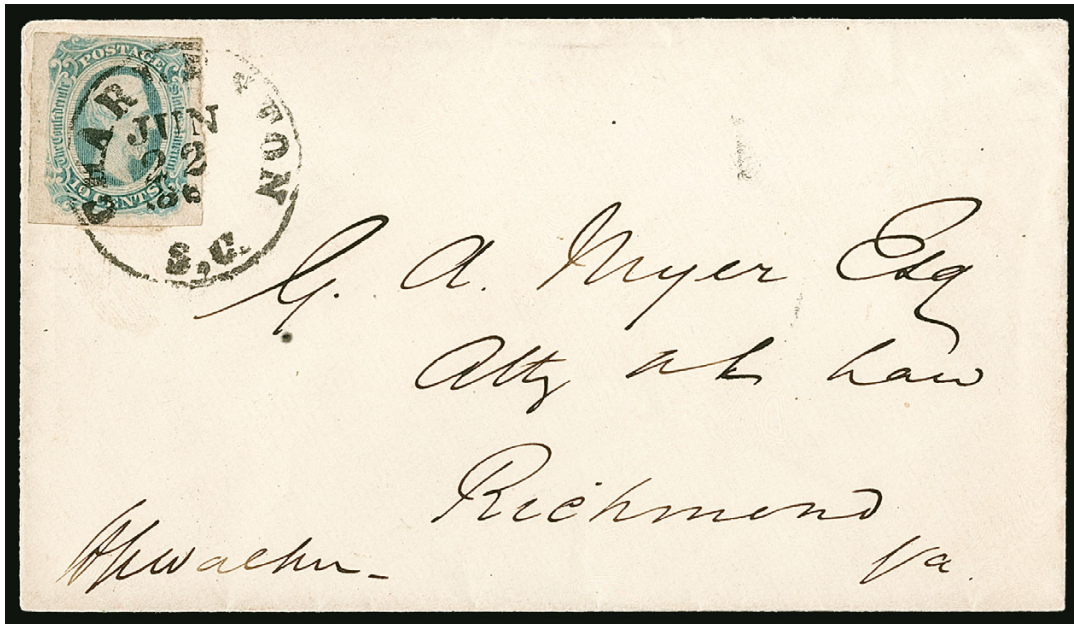 POSTAGE
The Confederate States of America
10 CENTS
CHARLESTON
JUN
22
S.C.
G. A. Myer Esq
Atty at Law
Richmond
Va.